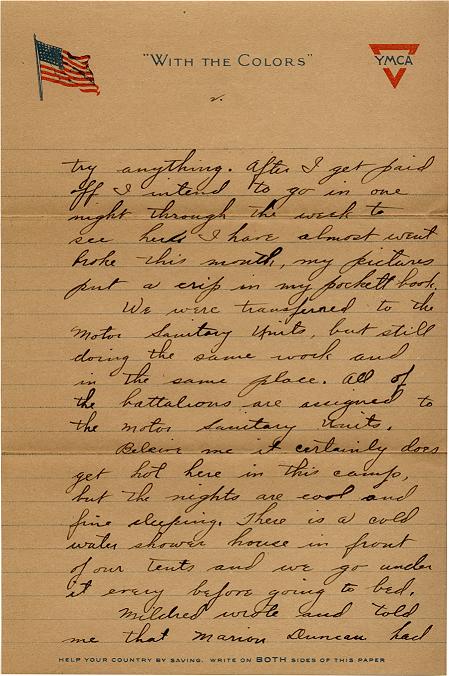 "WITH THE COLORS"
YMCA
v.
try anything. After I get paid
off I intend to go in one
night through the week to
see her I have almost went
broke this month, my pictures
put a crip in my pockett book.
We were transferred to the
Motor Sanitary Units, but still
doing the same work and
in the same place. All of
the battalions are assigned to
the Motor Sanitary Units.
Beleive me it certainly does
get hot here in this camp,
but the nights are cool and
fine sleeping. There is a cold
water shower house in front
of our tents and we go under
it every before going to bed.
Mildred wrote and told
me that Marion Duncan had
HELP YOUR COUNTRY BY SAVING. WRITE ON BOTH SIDES OF THIS PAPER